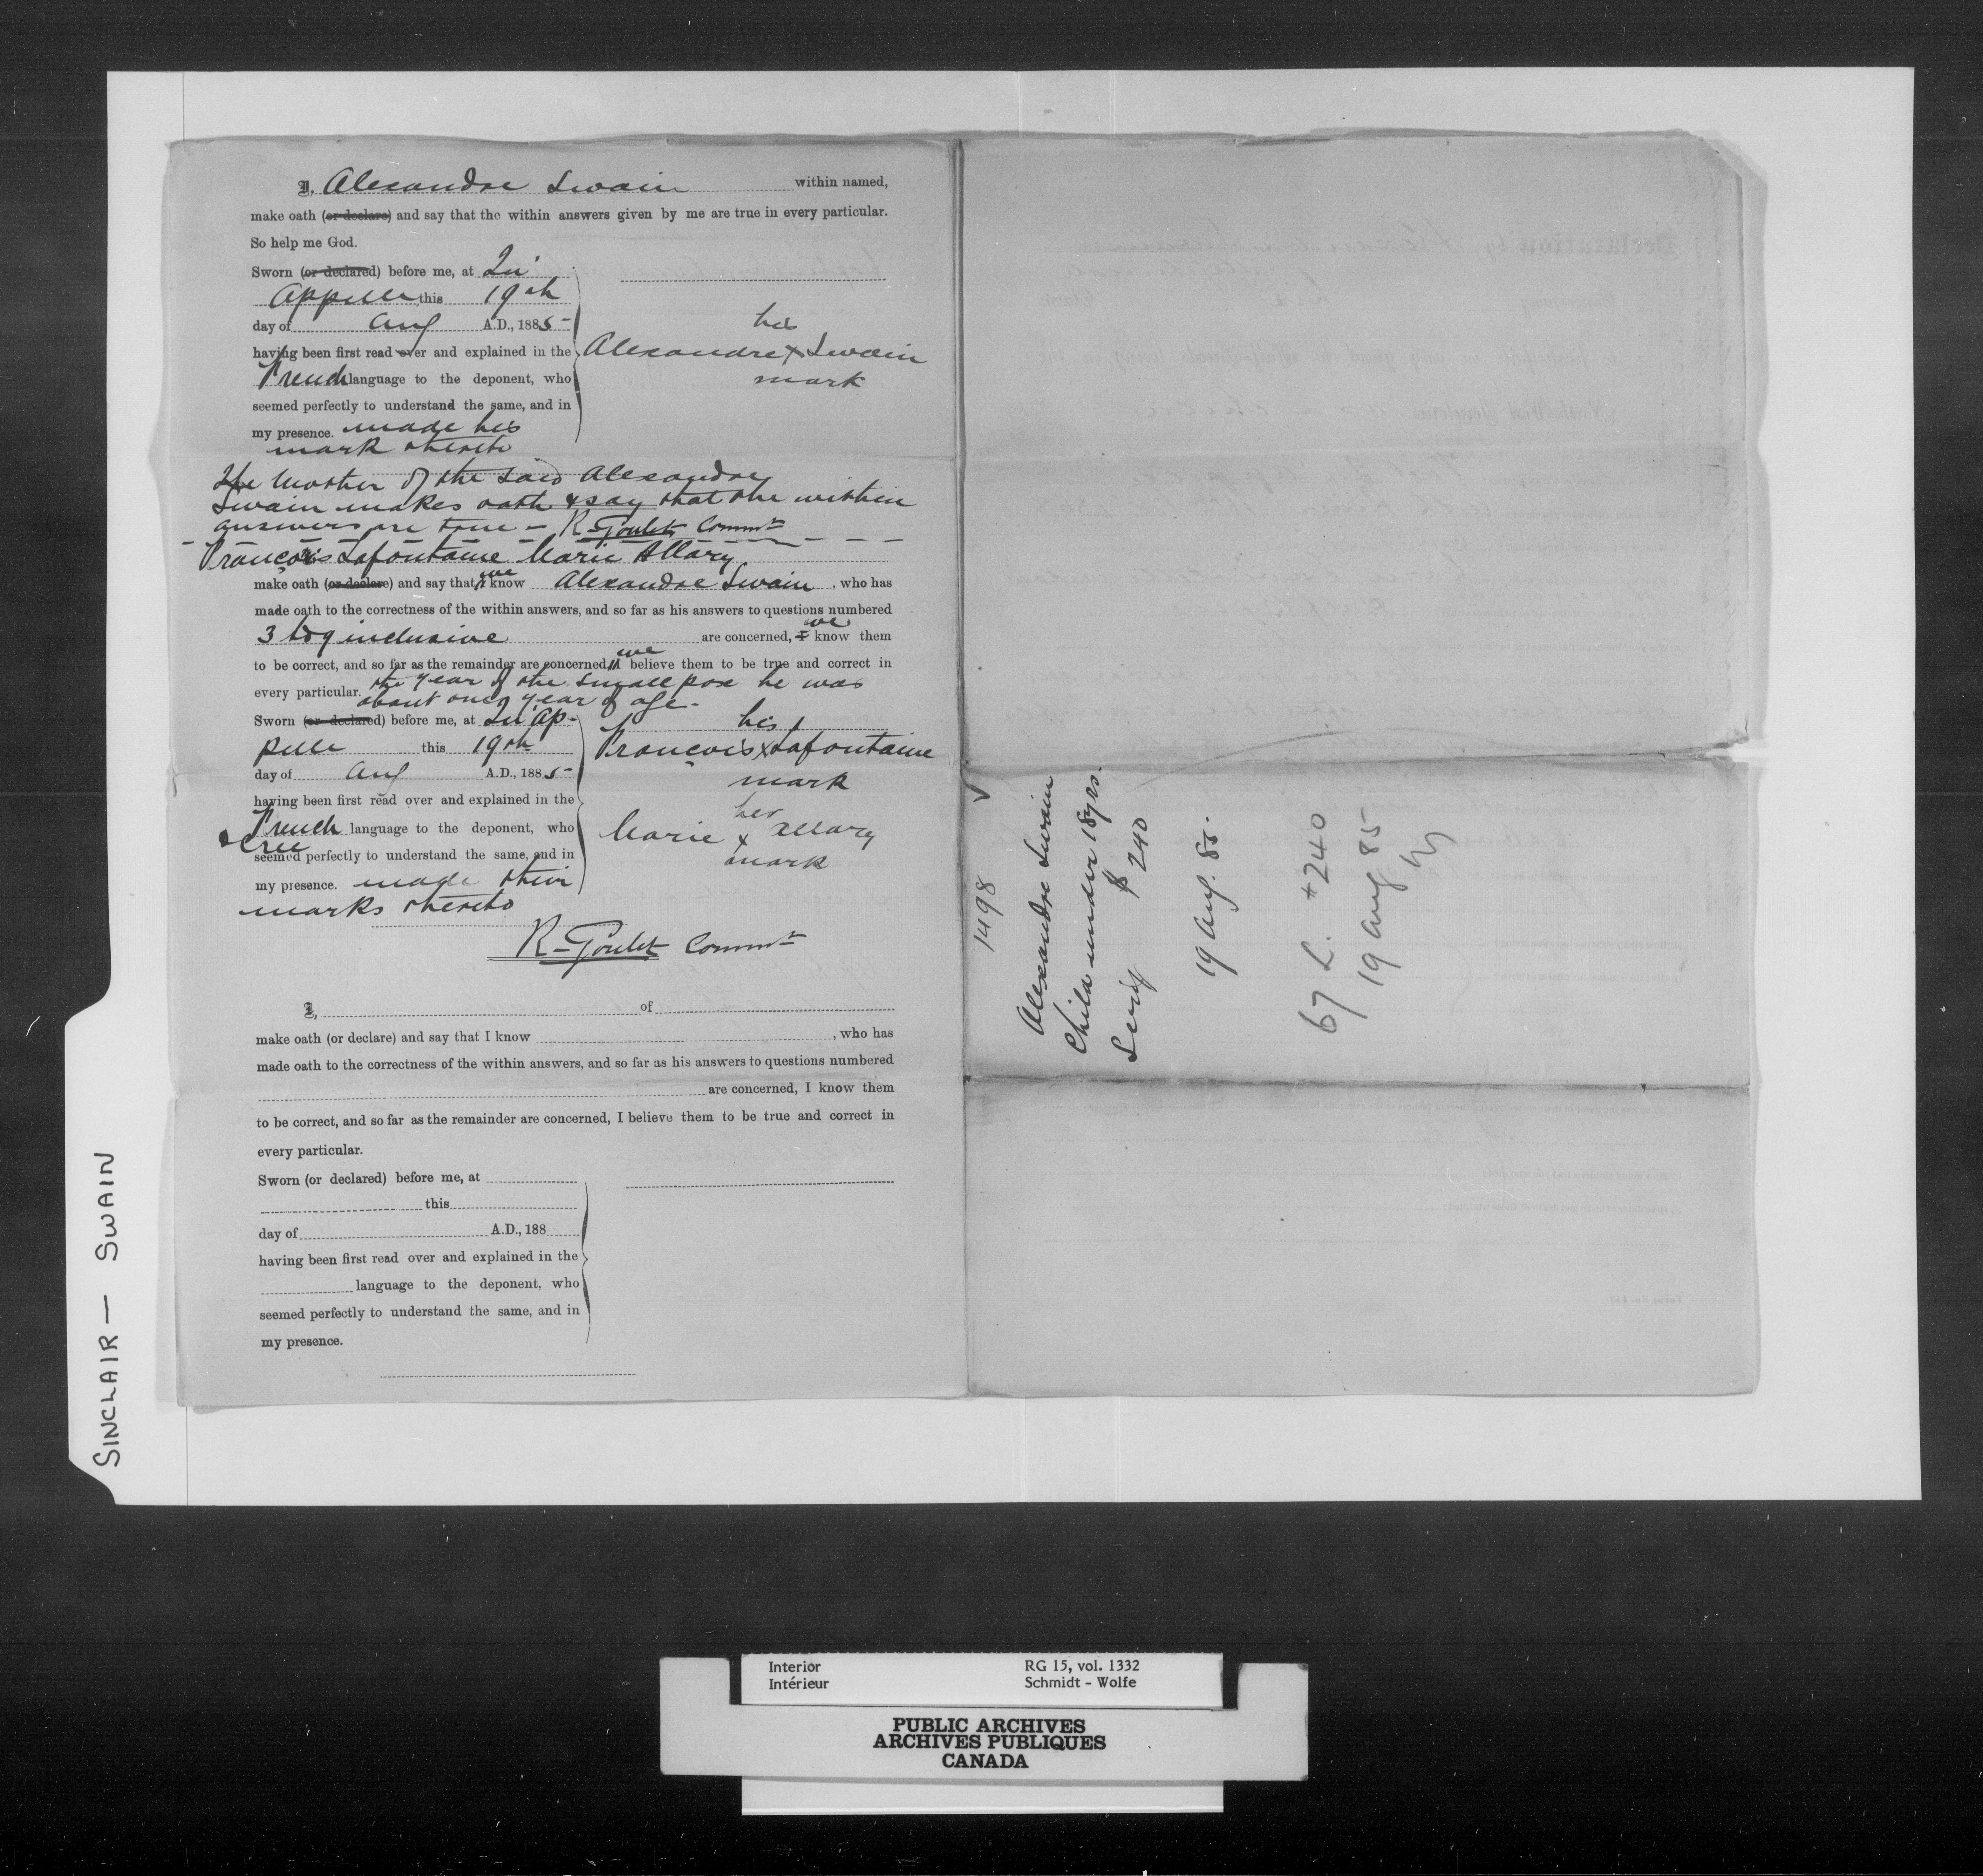 I, Alexandre Swain within named,
make oath (or declare) and say that the within answers given by me are true in every particular.
So help me God.
Sworn (or declared) before me, at Qu'
Appelle this 19th
day of Aug A.D., 1885
having been first read over and explained in the
French language to the deponent, who
seemed perfectly to understand the same, and in
my presence. made his
mark thereto
his
Alexandre x Swain
mark
The Mother of the said Alexandre
Swain makes oath & say that the within
answers are true - R. Goulet Commr
François Lafontaine Marie Allary
make oath (or declare) and say that I we know Alexandre Swain, who has
made oath to the correctness of the within answers, and so far as his answers to questions numbered
3 to 9 inclusive are concerned, I we know them
to be correct, and so far as the remainder are concerned, I we believe them to be true and correct in
every particular. the year of the small pox he was
about one year of age.
Sworn (or declared) before me, at Qu'Ap-
pelle this 19th
day of Aug A.D., 1885
having been first read over and explained in the
French language to the deponent, who
& Cree
seemed perfectly to understand the same, and in
my presence. made their
marks thereto
his
François x Lafontaine
mark
her
Marie x Allary
mark
R. Goulet Commr
I, of
make oath (or declare) and say that I know , who has
made oath to the correctness of the within answers, and so far as his answers to questions numbered
are concerned, I know them
to be correct, and so far as the remainder are concerned, I believe them to be true and correct in
every particular.
Sworn (or declared) before me, at
this
day of A.D., 188
having been first read over and explained in the
language to the deponent, who
seemed perfectly to understand the same, and in
my presence.
1498
Alexandre Swain
Child under 18 yrs.
Scrip $240
19 Aug. 85.
67 L. $240
19 Aug 85
SINCLAIR — SWAIN
Interior RG 15, vol. 1332
Intérieur Schmidt - Wolfe
PUBLIC ARCHIVES
ARCHIVES PUBLIQUES
CANADA